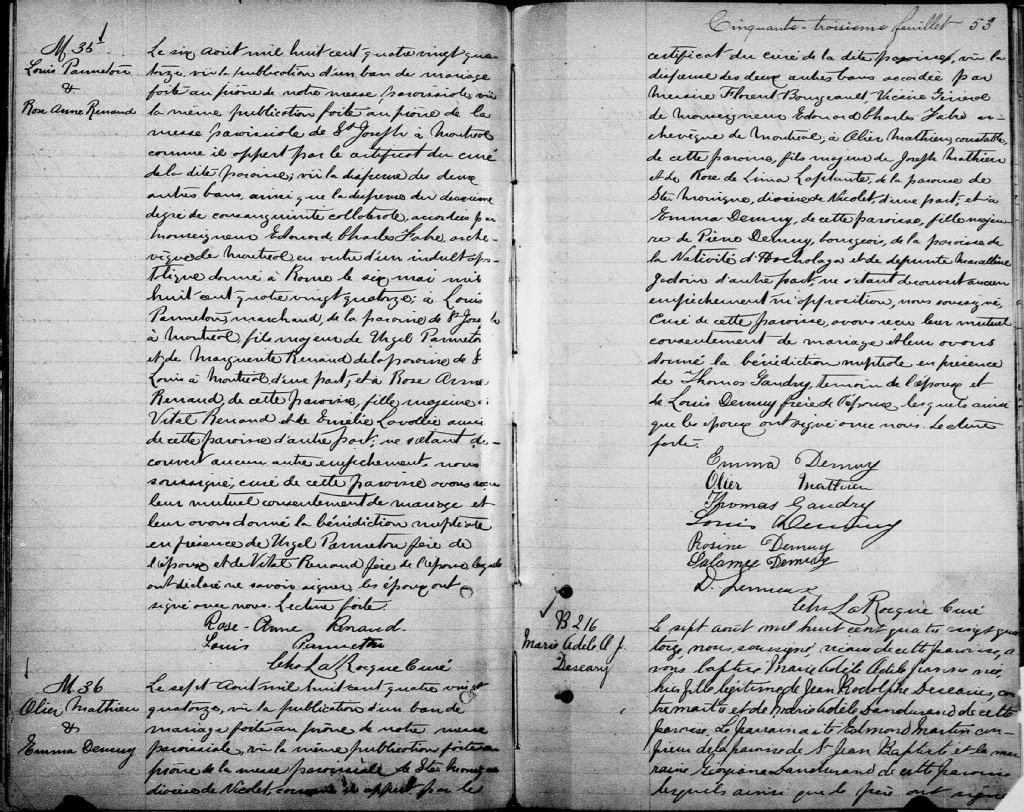 M 35
Louis Panneton
&
Rose Anne Renaud
Le six août mil huit cent quatre vingt qua-
torze, vu la publication d'un ban de mariage
faite au prône de notre messe paroissiale, vu
la même publication faite au prône de la
messe paroissiale de St Joseph à Montréal
comme il appert par le certificat du curé
de la dite paroisse; vu la dispense des deux
autres bans, ainsi que la dispense du deuxième
degré de consanguinité collatérale, accordées par
Monseigneur Edouard Charles Fabre, arche-
vêque de Montréal en vertu d'un indult apos-
tolique donné à Rome le six mai mil
huit cent quatre vingt quatorze; à Louis
Panneton, marchand, de la paroisse de St Joseph
à Montréal, fils majeur de Urgel Panneton
et de Marguerite Renaud de la paroisse de St
Louis à Montréal d'une part; et à Rose Anne
Renaud, de cette paroisse, fille majeure de
Vital Renaud et de Emélie Lavallée aussi
de cette paroisse d'autre part; ne s'étant dé-
couvert aucun autre empêchement, nous
soussigné, curé de cette paroisse avons reçu
leur mutuel consentement de mariage et
leur avons donné la bénédiction nuptiale
en présence de Urgel Panneton père de
l'époux et de Vital Renaud père de l'épouse lesquels
ont déclaré ne savoir signer les époux ont
signé avec nous. Lecture faite.
Rose-Anne Renaud
Louis Panneton
Chs LaRocque Curé
M. 36
Olier Mathieu
&
Emma Demuy
Le sept Août mil huit cent quatre vingt
quatorze, vu la publication d'un ban de
mariage faite au prône de notre messe
paroissiale, vu la même publication faite au
prône de la messe paroissiale de Ste Monique
diocèse de Nicolet, comme il appert par le
Cinquante-troisième feuillet 53
certificat du curé de la dite paroisse, vu la
dispense des deux autres bans accordée par
Messire Florent Bourgeault, Vicaire Général
de Monseigneur Edouard Charles Fabre ar-
chevêque de Montréal, à Olier Mathieu, constable
de cette paroisse, fils majeur de Joseph Mathieu
et de Rose de Lima Laplante, de la paroisse de
Ste Monique, diocèse de Nicolet d'une part; et à
Emma Demuy, de cette paroisse, fille majeu-
re de Pierre Demuy, bourgeois, de la paroisse de
la Nativité d'Hochelaga et de defunte Marceline
Jodoin d'autre part, ne s'étant découvert aucun
empêchement ni opposition, nous soussigné,
Curé de cette paroisse, avons reçu leur mutuel
consentement de mariage et leur avons
donné la bénédiction nuptiale en présence
de Thomas Gaudry, témoin de l'époux et
de Louis Demuy frère de l'épouse lesquels ainsi
que les époux ont signé avec nous. Lecture
faite.
Emma Demuy
Olier Mathieu
Thomas Gaudry
Louis Demuy
Rosine Demuy
Salomée Demuy
Chs LaRocque Curé
B 216
Marie Adele A. J.
Deseary
Le sept août mil huit cent quatre vingt qua-
torze, nous, soussigné, vicaire de cette paroisse, a-
vons baptisé Marie Adèle née
hier, fille légitime de Jean Rodolphe con-
tremaître et de Marie Adele Dandurand de cette
paroisse. Le parrain a été Edmond Martin con-
fiseur de la paroisse de St Jean Baptiste et la mar-
raine Georgiana Dandurand de cette paroisse
lesquels ainsi que le père ont signé